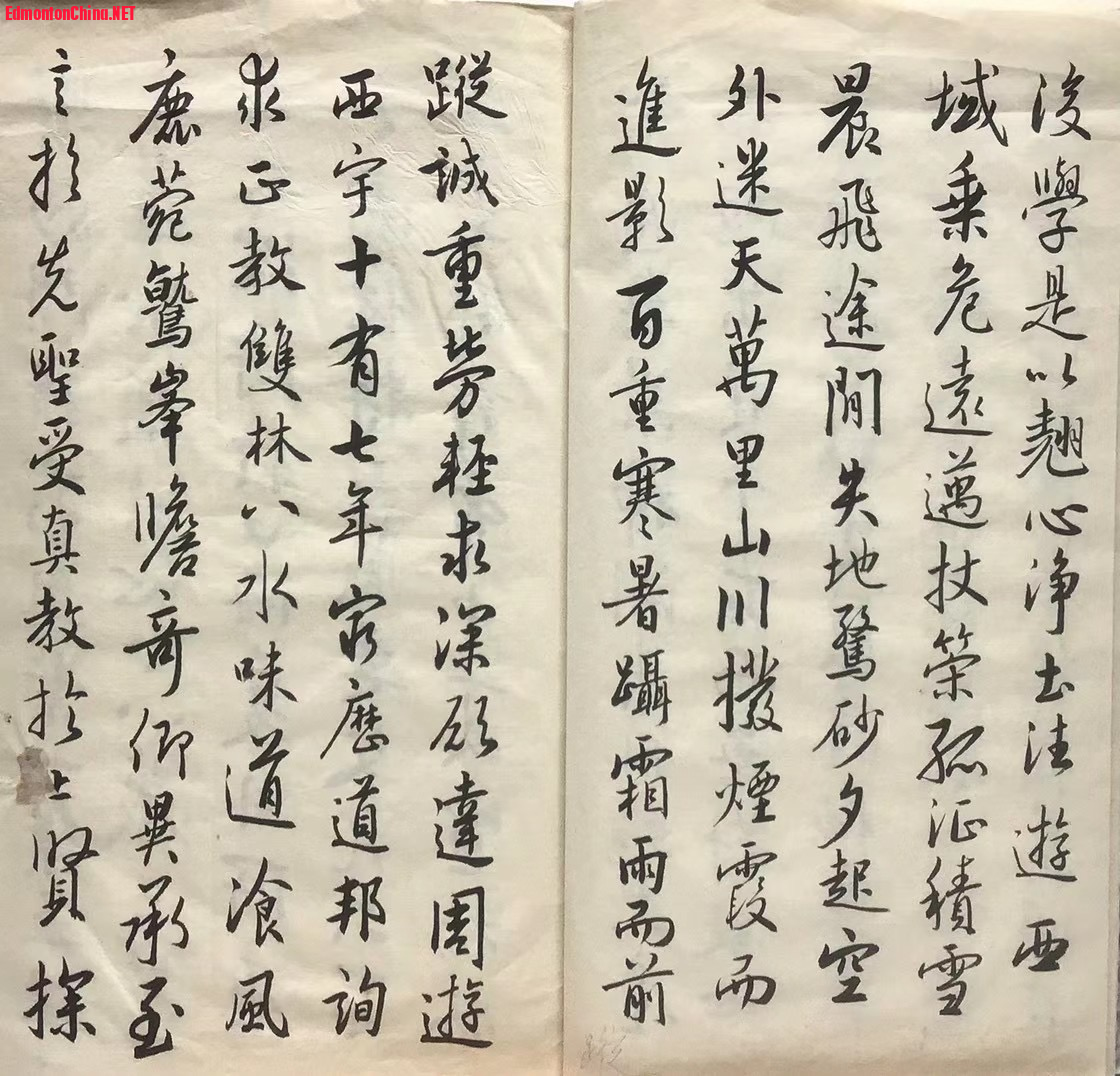 EdmontonChina.NET
後學是以翹心淨土往遊西
域乗危遠邁杖策孤征積雪
晨飛途閒失地驚砂夕起空
外迷天萬里山川撥煙霞而
進影百重寒暑躡霜雨而前
蹤誠重勞輕求深願達周遊
西宇十有七年窮歷道邦詢
求正教雙林八水味道飡風
鹿菀鷲峯瞻奇仰異承至
言於先聖受真教於上賢探